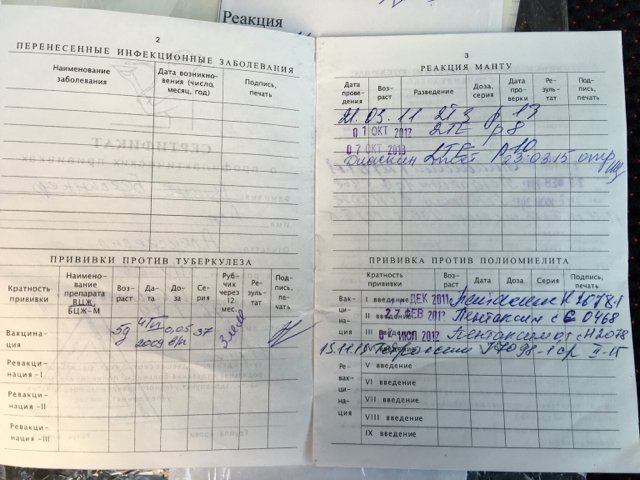 Реакция
2
ПЕРЕНЕСЕННЫЕ ИНФЕКЦИОННЫЕ ЗАБОЛЕВАНИЯ
Наименование заболевания
Дата возникновения (число, месяц, год)
Подпись, печать
ПРИВИВКИ ПРОТИВ ТУБЕРКУЛЕЗА
Кратность прививки
Наименование препарата ВЦЖ, БЦЖ-М
Возраст
Дата
Доза
Серия
Рубчик через 12 мес.
Результат
Подпись, печать
Вакцинация
5д
2009
0,05
37
Ревакцинация -I
Ревакцинация -II
Ревакцинация -III
3
РЕАКЦИЯ МАНТУ
Дата проведения
Возраст
Разведение
Доза, серия
Дата проверки
Результат
Подпись, печать
21.03.11 2ТЕ р 13
01 ОКТ 2012 2ТЕ р 8
07 ОКТ 2013 2ТЕ р 10
Диаскин 23.03.15 отр
ПРИВИВКА ПРОТИВ ПОЛИОМИЕЛИТА
Кратность прививки
Возраст
Дата
Доза
Серия
Подпись, печать
Вакцинация
I введение ДЕК 2011 Пентаксим
II введение 27 ФЕВ 2012 Пентаксим с 0468
III введение ИЮЛ 2012 Пентаксим с H2078
Ревакцинация
V введение
VI введение
VII введение
VIII введение
IX введение